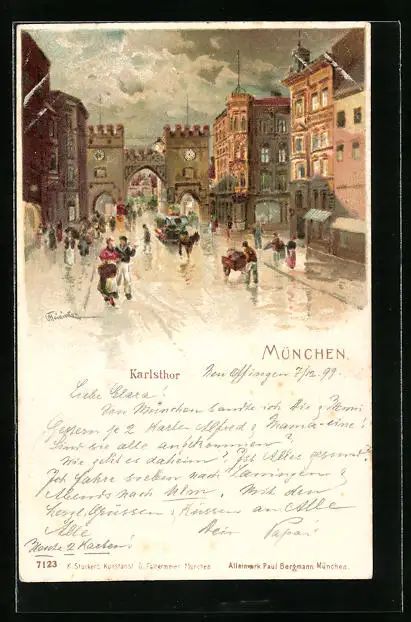 MÜNCHEN.
Karlsthor
Neu Offingen 7/12 99.
Liebe Clara!
Von München sandte ich Dir &
Gestern je 2 Karten Alfred & Mama eine!
Sind sie alle angekommen?
Wie geht es daheim? Ist Alles gesund?
Ich fahre soeben nach Lauingen &
Abends nach Ulm. Mit den
herzl. Grüssen & Küssen an Alle
Alle Dein Papa
Heute 2 Karten!
7123 K. Stücker's Kunstanst. G. Fallermeier München Alleinverk. Paul Bergmann, München.